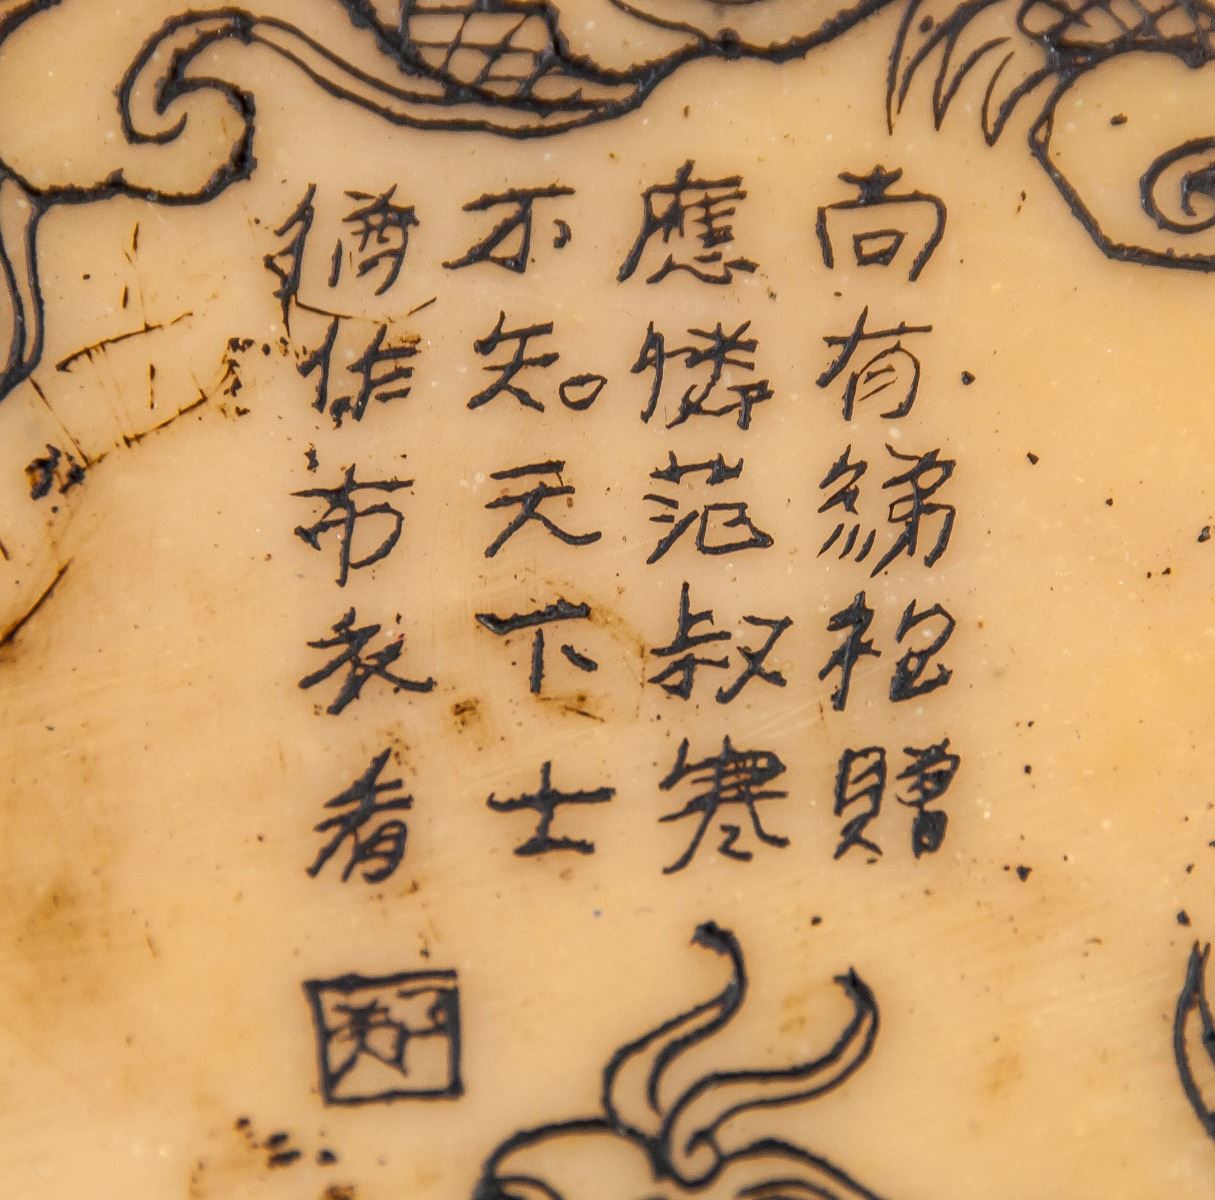 尚有綈袍贈
應憐范叔寒
不知。天下士
猶作布衣看